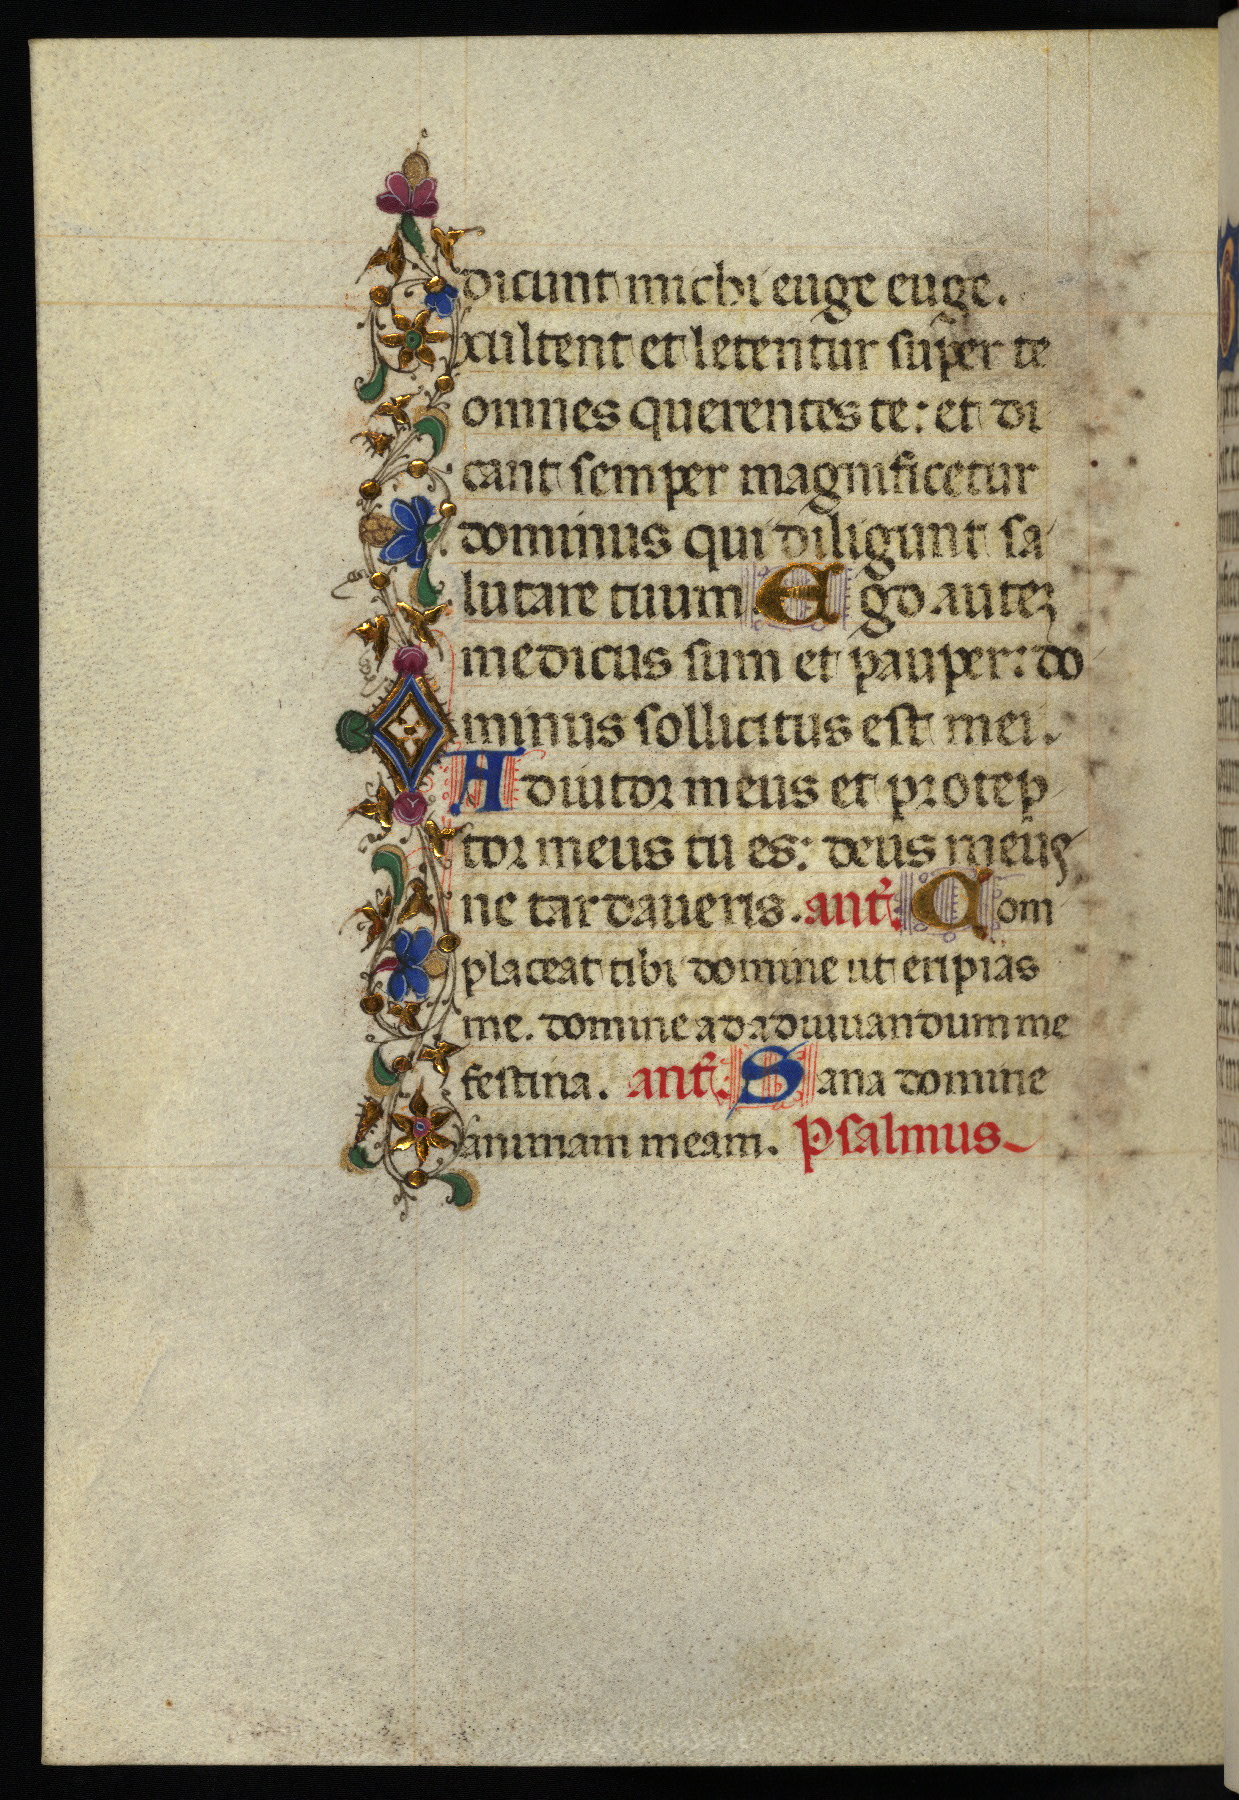 dicunt michi euge euge.
xultent et letentur super te
omnes querentes te: et di
cant semper magnificetur
dominus qui diligunt sa
lutare tuum. Ego autez
medicus sum et pauper: do
minus sollicitus est mei.
Adiutor meus et protep
tor meus tu es: deus meus
ne tardaueris. ant. Com
placeat tibi domine ut eripias
me. domine ad adiuuandum me
festina. ant. Sana domine
animam meam. Psalmus